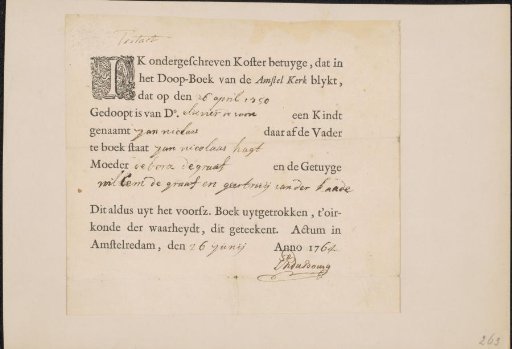 Testaet
IK ondergeschreven Koster betuyge, dat in
het Doop-Boek van de Amstel Kerk blykt,
dat op den 26 april 1750
Gedoopt is van Ds. een Kindt
genaamt Jan nicolaas daar af de Vader
te boek staat Jan nicolaas hagt
Moeder debora degraaf en de Getuyge
willem de graaf en geertruij van der
Dit aldus uyt het voorsz. Boek uytgetrokken, t'oir-
konde der waarheydt, dit geteekent. Actum in
Amstelredam, den 26 Junij Anno 1764
263